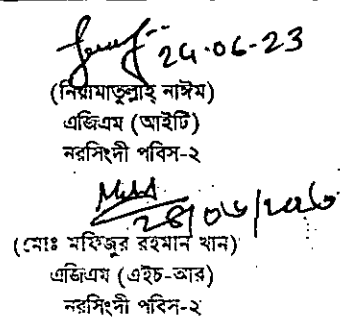 24-06-23
(নিয়ামাতুল্লাহ্ নাঈম)
এজিএম (আইটি)
নরসিংদী পবিস-২
(মোঃ মফিজুর রহমান খান)
এজিএম (এইচ-আর)
নরসিংদী পবিস-২